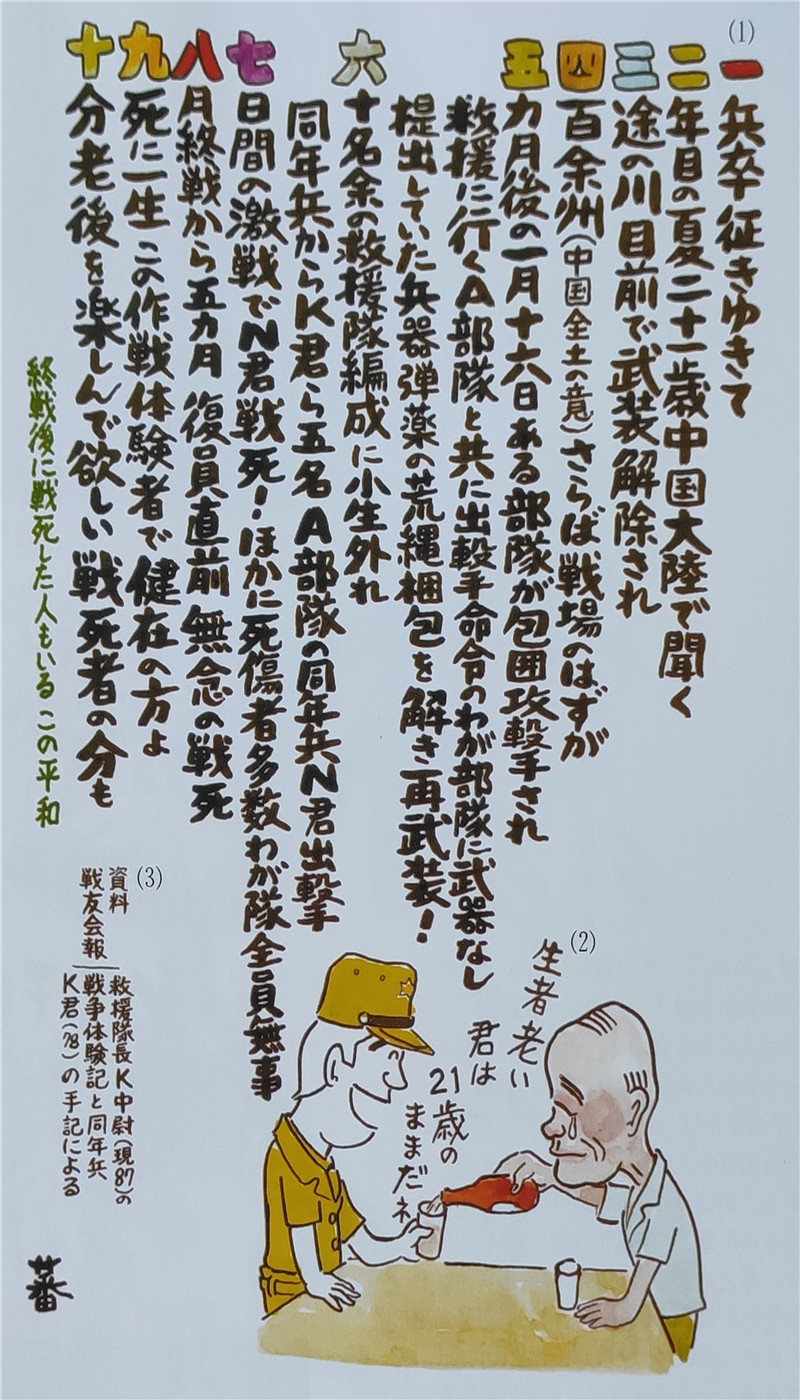 (1)
一兵卒 征きゆきて
二年目の夏二十一歳中国大陸で聞く
三途の川目前で武装解除され
四百余州(中国全土の意)さらば戦場のはずが
五カ月後の一月十六日ある部隊が包囲攻撃され
救援に行くA部隊と共に出撃命令のわが部隊に武器なし
提出していた兵器弾薬の荒縄梱包を解き再武装!
六十名余の救援隊編成に小生外れ
同年兵からK君ら五名A部隊の同年兵N君出撃
七日間の激戦でN君戦死!ほかに死傷者多数わが隊全員無事
八月終戦から五カ月 復員直前 無念の戦死
九死に一生 この作戦体験者で健在の方よ
十分老後を楽しんで欲しい戦死者の分も
終戦後に戦死した人もいる この平和
(2)
生者老い
君は
21歳の
ままだネ
(3)
資料
戦友会報
救援隊長K中尉(現87)の
戦争体験記と同年兵
K君(78)の手記による
蕃